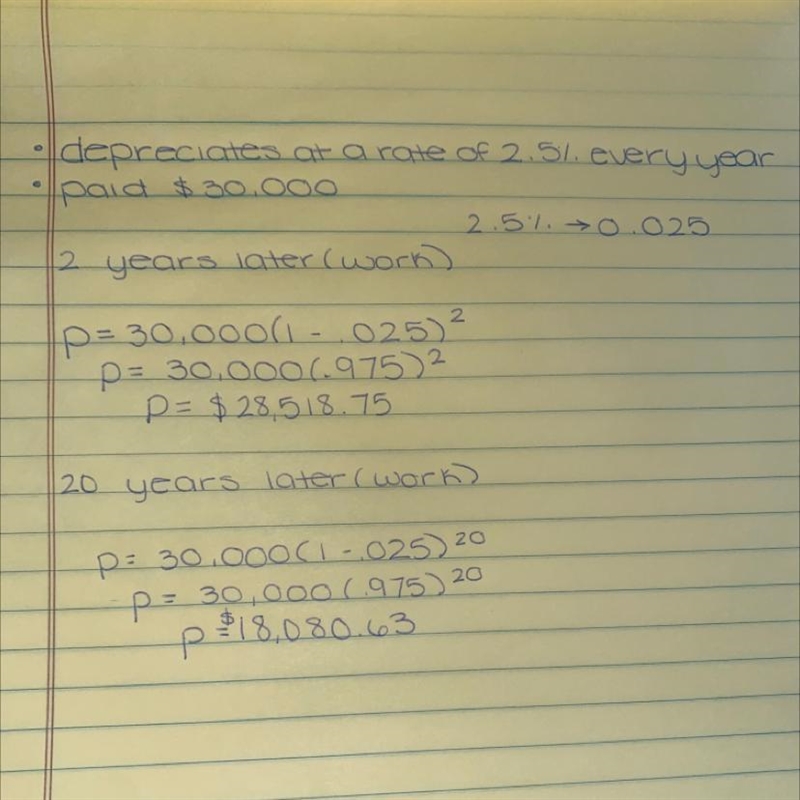 • depreciates at a rate of 2.5% every year
• paid $30,000
2.5% → 0.025
2 years later (work)
p = 30,000(1 - .025)²
p = 30,000(.975)²
p = $28,518.75
20 years later (work)
p = 30,000(1 - .025)²⁰
p = 30,000(.975)²⁰
p = $18,080.63